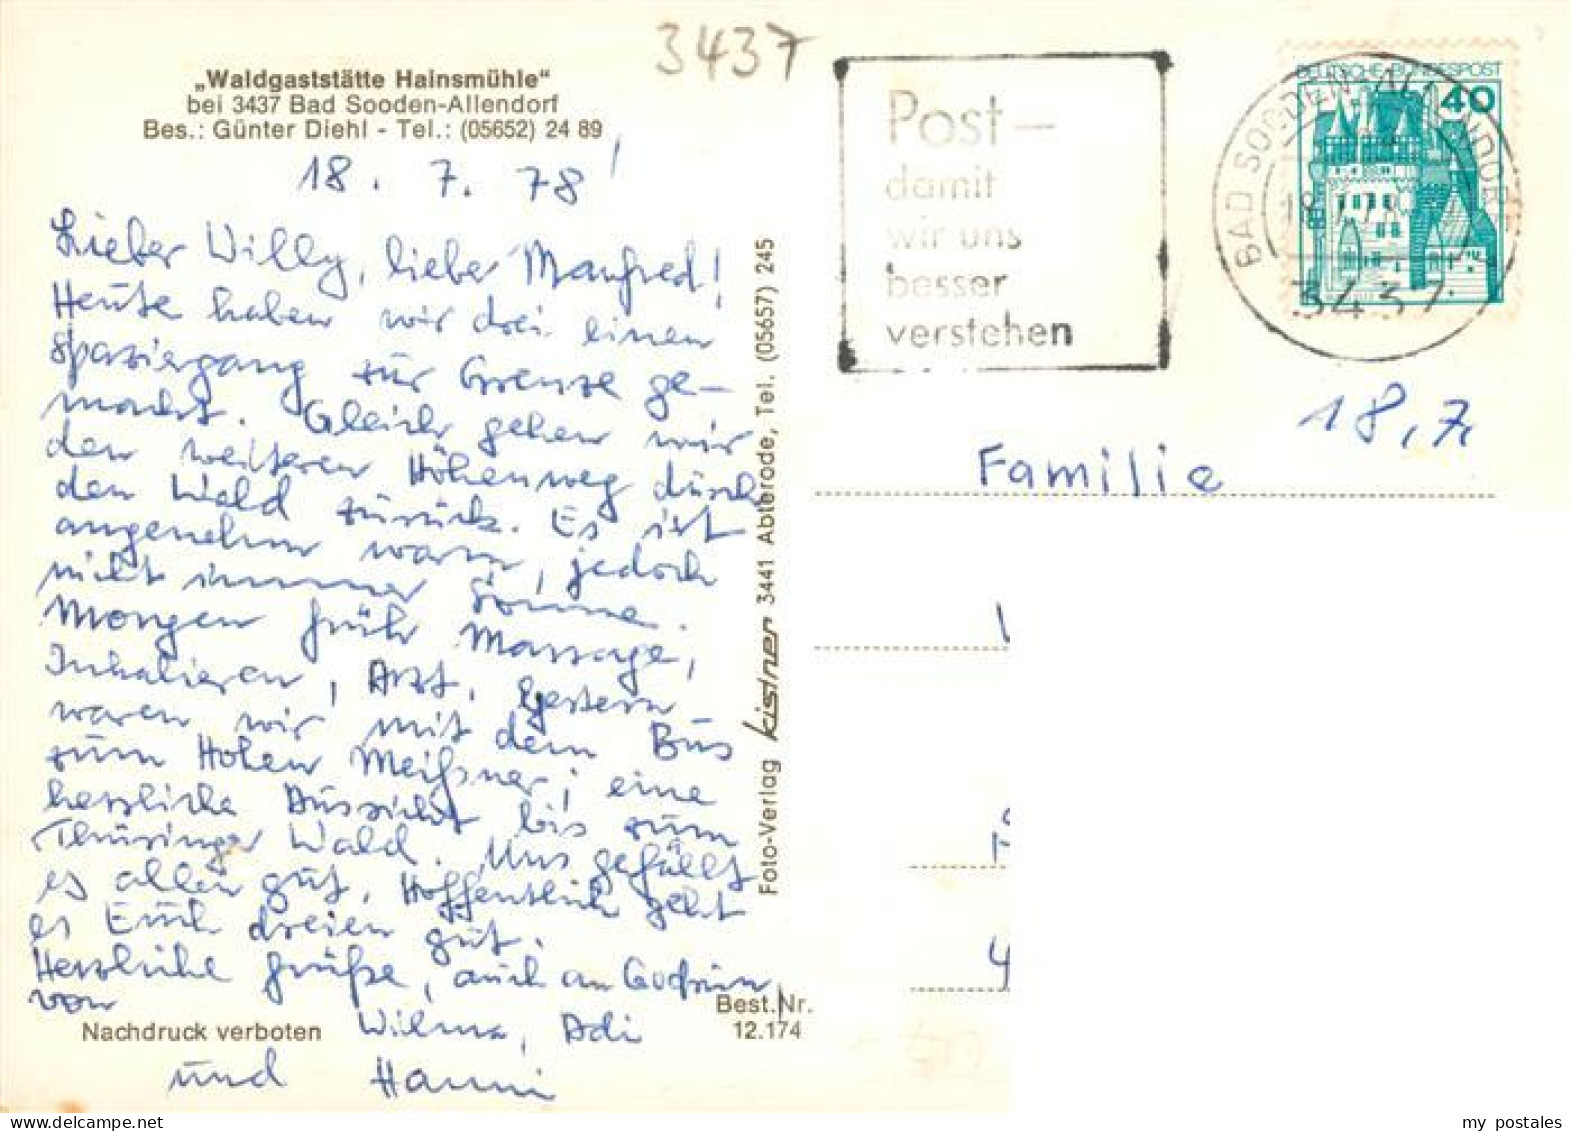 3437
„Waldgaststätte Hainsmühle“
bei 3437 Bad Sooden-Allendorf
Bes.: Günter Diehl - Tel.: (05652) 24 89
18. 7. 78!
Lieber Willy, lieber Manfred!
Heute haben wir drei einen
Spaziergang zur Grenze ge-
macht. Gleich gehen wir
den weiteren Höhenweg durch
den Wald zurück. Es ist
angenehm warm, jedoch
nicht immer Sonne.
Morgen früh Massage,
Inhalieren, Arzt. Gestern
waren wir mit dem Bus
zum Hohen Meißner; eine
herrliche Aussicht bis zum
Thüringer Wald. Uns gefällt
es allen gut, Hoffentlich geht
es Euch dreien gut.
Herzliche Grüße, auch an Gudrun,
von
Wilma, Adi
und Hanni
Nachdruck verboten
Best.Nr.
12.174
Foto-Verlag kistner 3441 Abterode, Tel. (05657) 245
Post –
damit
wir uns
besser
verstehen
DEUTSCHE BUNDESPOST
40
BAD SOODEN-ALLENDORF
3437
18.7.
Familie
my_postales